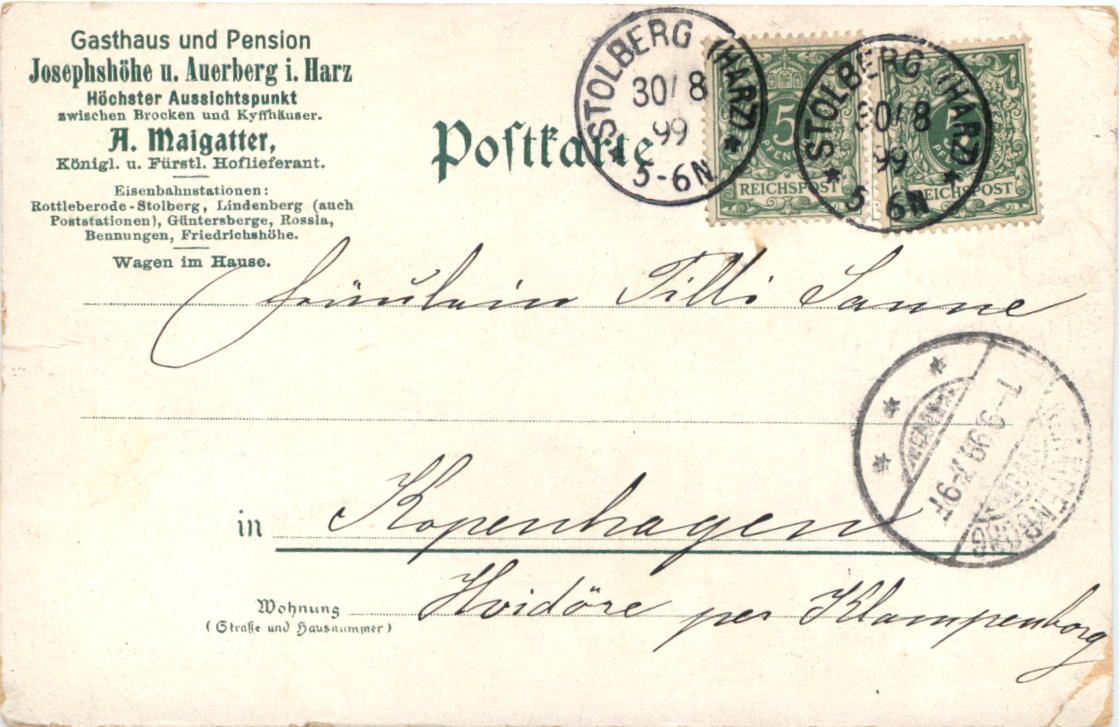 Gasthaus und Pension
Josephshöhe u. Auerberg i. Harz
Höchster Aussichtspunkt
zwischen Brocken und Kyffhäuser.
A. Maigatter,
Königl. u. Fürstl. Hoflieferant.
Eisenbahnstationen:
Rottleberode-Stolberg, Lindenberg (auch
Poststationen), Güntersberge, Rossla,
Bennungen, Friedrichshöhe.
Wagen im Hause.
Postkarte
STOLBERG (HARZ)
30/8
99
5-6N
5
PFENNIG
REICHSPOST
STOLBERG (HARZ)
30/8
99
5 6N
5
PFENNIG
REICHSPOST
Fräulein Tilli Sanne
1-9.99.7-9F
in Kopenhagen
Wohnung Hvidöre per Klampenborg
(Straße und Hausnummer)